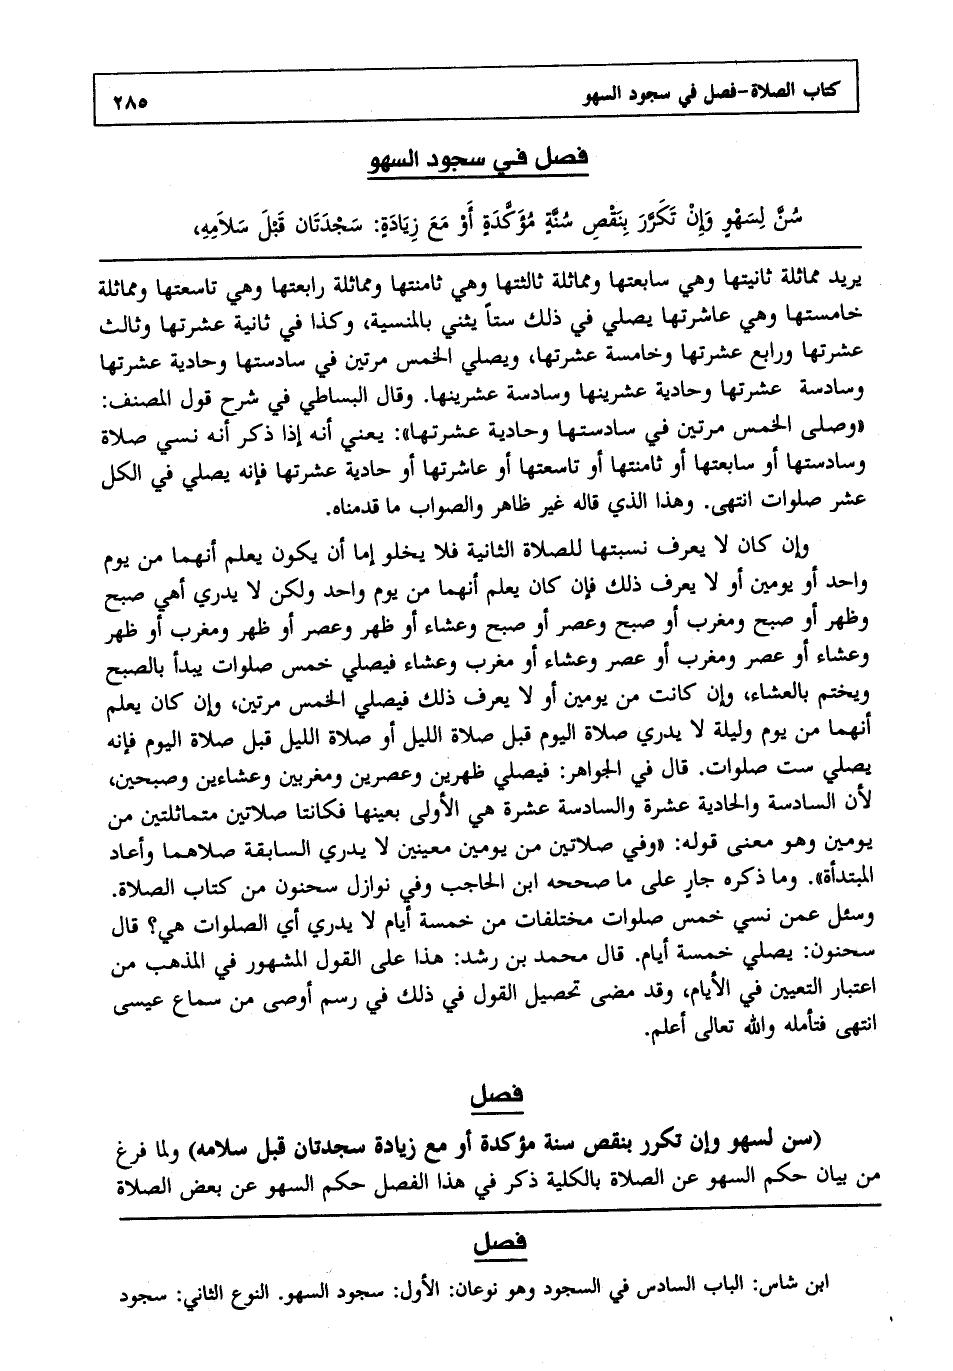 كتاب الصلاة-فصل في سجود السهو ٢٨٥
فصل في سجود السهو
سُنَّ لِسَهْوٍ وَإِنْ تَكَرَّرَ بِنَقْصِ سُنَّةٍ مُؤَكَّدَةٍ أَوْ مَعَ زِيَادَةٍ: سَجْدَتَان قَبْلَ سَلاَمِهِ،
يريد مماثلة ثانيتها وهي سابعتها ومماثلة ثالثتها وهي ثامنتها ومماثلة رابعتها وهي تاسعتها ومماثلة
خامستها وهي عاشرتها يصلي في ذلك ستاً يثني بالمنسية، وكذا في ثانية عشرتها وثالث
عشرتها ورابع عشرتها وخامسة عشرتها، ويصلي الخمس مرتين في سادستها وحادية عشرتها
وسادسة عشرتها وحادية عشرينها وسادسة عشرينها. وقال البساطي في شرح قول المصنف:
«وصلى الخمس مرتين في سادستها وحادية عشرتها»: يعني أنه إذا ذكر أنه نسي صلاة
وسادستها أو سابعتها أو ثامنتها أو تاسعتها أو عاشرتها أو حادية عشرتها فإنه يصلي في الكل
عشر صلوات انتهى. وهذا الذي قاله غير ظاهر والصواب ما قدمناه.
وإن كان لا يعرف نسبتها للصلاة الثانية فلا يخلو إما أن يكون يعلم أنهما من يوم
واحد أو يومين أو لا يعرف ذلك فإن كان يعلم أنهما من يوم واحد ولكن لا يدري أهي صبح
وظهر أو صبح ومغرب أو صبح وعصر أو صبح وعشاء أو ظهر وعصر أو ظهر ومغرب أو ظهر
وعشاء أو عصر ومغرب أو عصر وعشاء أو مغرب وعشاء فيصلي خمس صلوات يبدأ بالصبح
ويختم بالعشاء، وإن كانت من يومين أو لا يعرف ذلك فيصلي الخمس مرتين، وإن كان يعلم
أنهما من يوم وليلة لا يدري صلاة اليوم قبل صلاة الليل أو صلاة الليل قبل صلاة اليوم فإنه
يصلي ست صلوات. قال في الجواهر: فيصلي ظهرين وعصرين ومغربين وعشاءين وصبحين،
لأن السادسة والحادية عشرة والسادسة عشرة هي الأولى بعينها فكانتا صلاتين متماثلتين من
يومين وهو معنى قوله: «وفي صلاتين من يومين معينين لا يدري السابقة صلاهما وأعاد
المبتدأة». وما ذكره جارٍ على ما صححه ابن الحاجب وفي نوازل سحنون من كتاب الصلاة.
وسئل عمن نسي خمس صلوات مختلفات من خمسة أيام لا يدري أي الصلوات هي؟ قال
سحنون: يصلي خمسة أيام. قال محمد بن رشد: هذا على القول المشهور في المذهب من
اعتبار التعيين في الأيام، وقد مضى تحصيل القول في ذلك في رسم أوصى من سماع عيسى
انتهى فتأمله والله تعالى أعلم.
فصل
(سن لسهو وإن تكرر بنقص سنة مؤكدة أو مع زيادة سجدتان قبل سلامه) ولما فرغ
من بيان حكم السهو عن الصلاة بالكلية ذكر في هذا الفصل حكم السهو عن بعض الصلاة
فصل
ابن شاس: الباب السادس في السجود وهو نوعان: الأول: سجود السهو. النوع الثاني: سجود